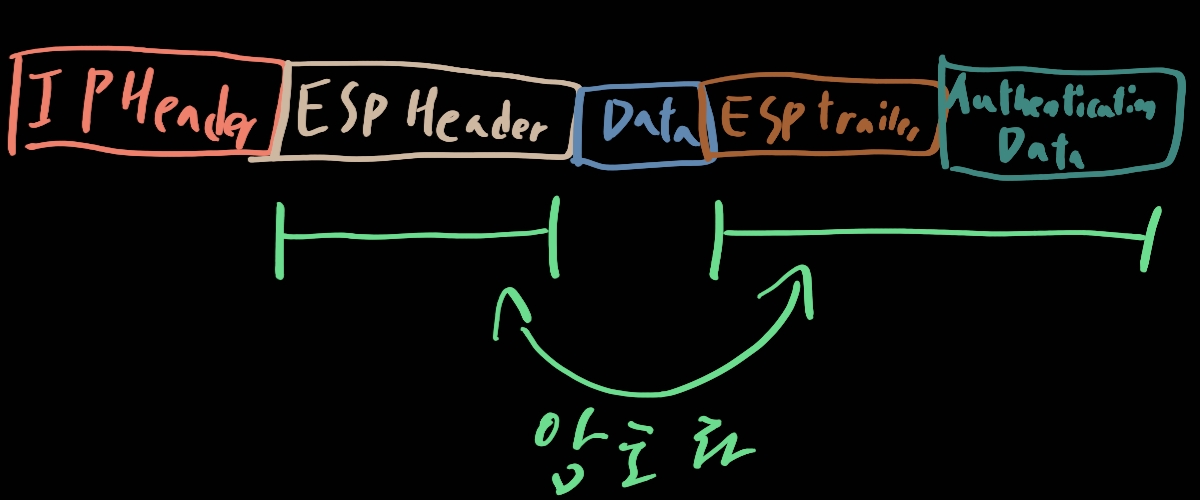 IP Header
ESP Header
Data
ESP trailer
Authentication
Data
암호화